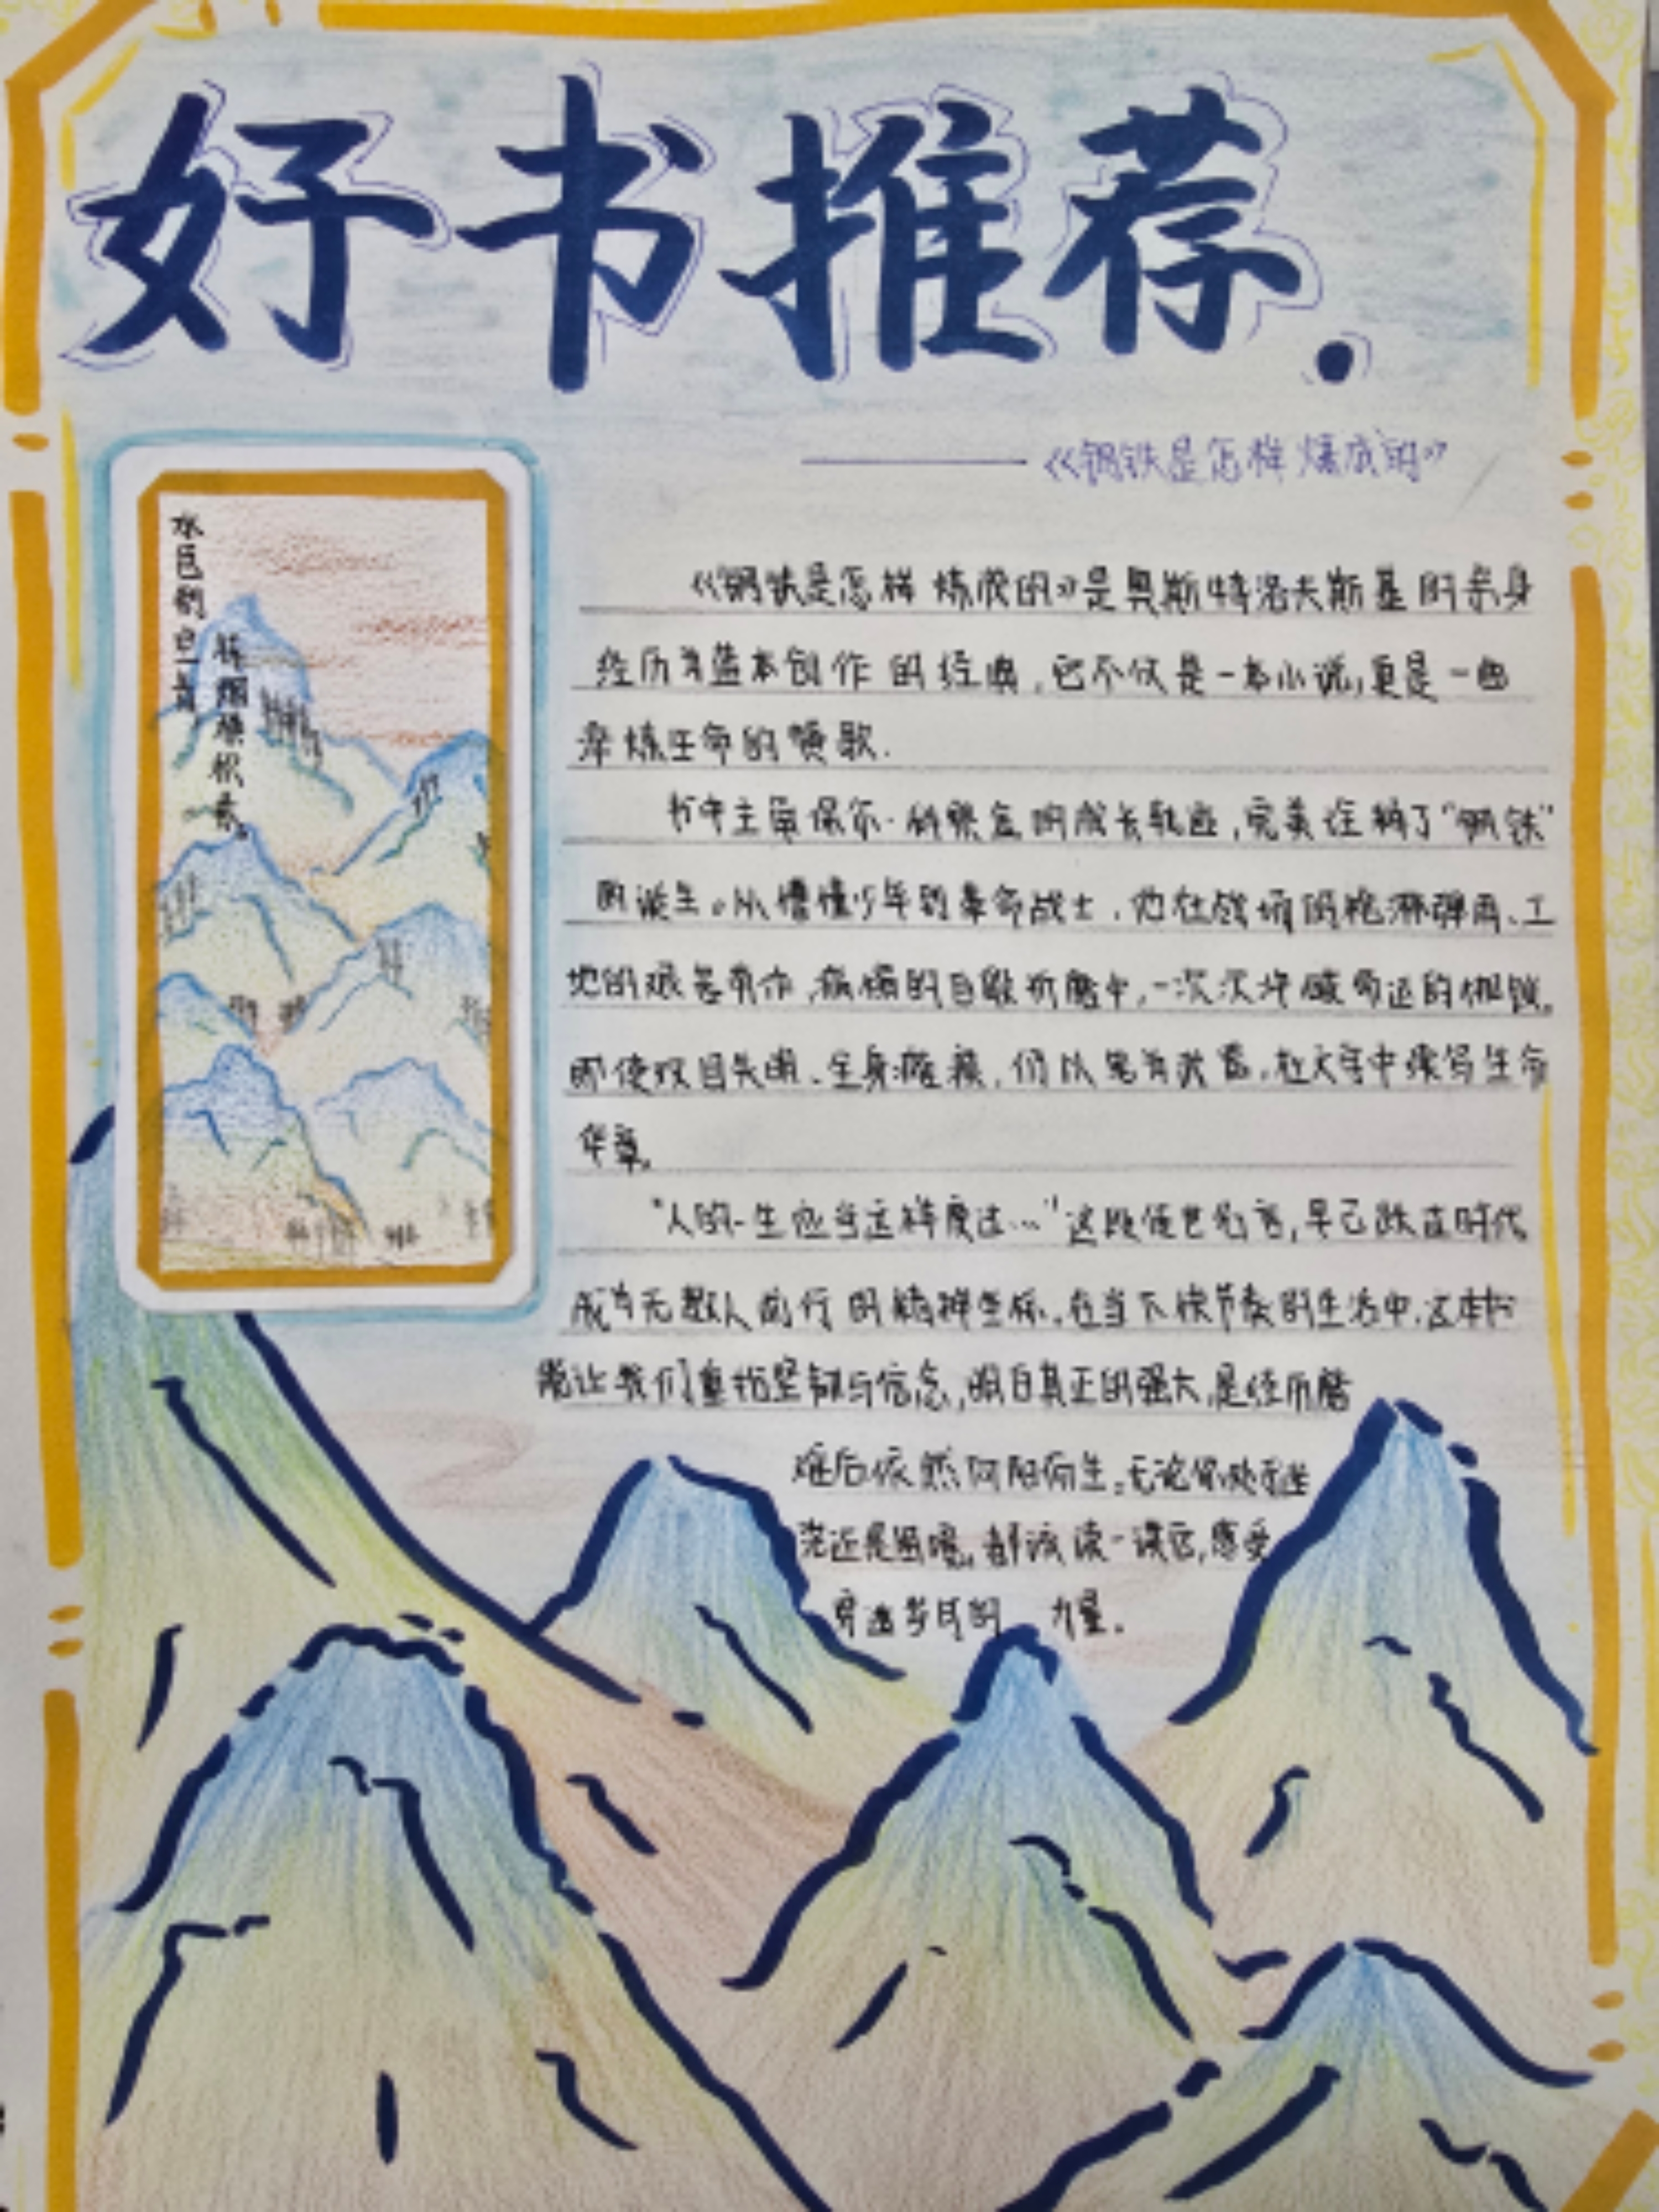 好书推荐.
——《钢铁是怎样炼成的》
水色韵
《钢铁是怎样炼成的》是奥斯特洛夫斯基的亲身
经历为蓝本创作的经典,它不仅是一本小说,更是一曲
淬炼生命的赞歌.
书中主角保尔·柯察金的成长轨迹,完美诠释了“钢铁”
的诞生。从懵懂少年到革命战士,他在战场的枪淋弹雨、工
地的艰苦劳作,病痛的百般折磨中,一次次冲破命运的枷锁。
即使双目失明、全身瘫痪,仍以笔为武器,在文字中续写生命
华章。
“人的一生应当这样度过…”这段经典名言,早已跨越时代
成为无数人前行的精神坐标。在当下快节奏的生活中,这本书
能让我们重拾坚韧与信念,明白真正的强大,是经历磨
难后依然向阳而生。无论你处于迷
茫还是困境,都该读一读它,感受
穿越岁月的 力量.